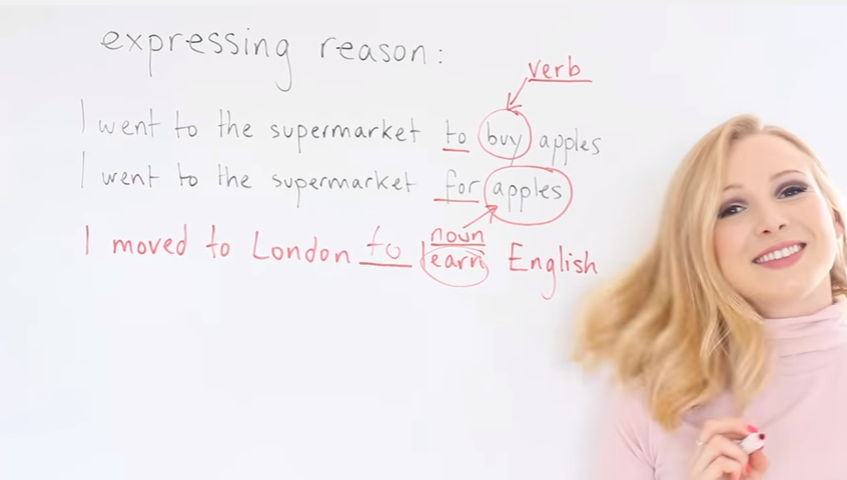 expressing reason:
verb
I went to the supermarket to buy apples
I went to the supermarket for apples
noun
I moved to London to learn English